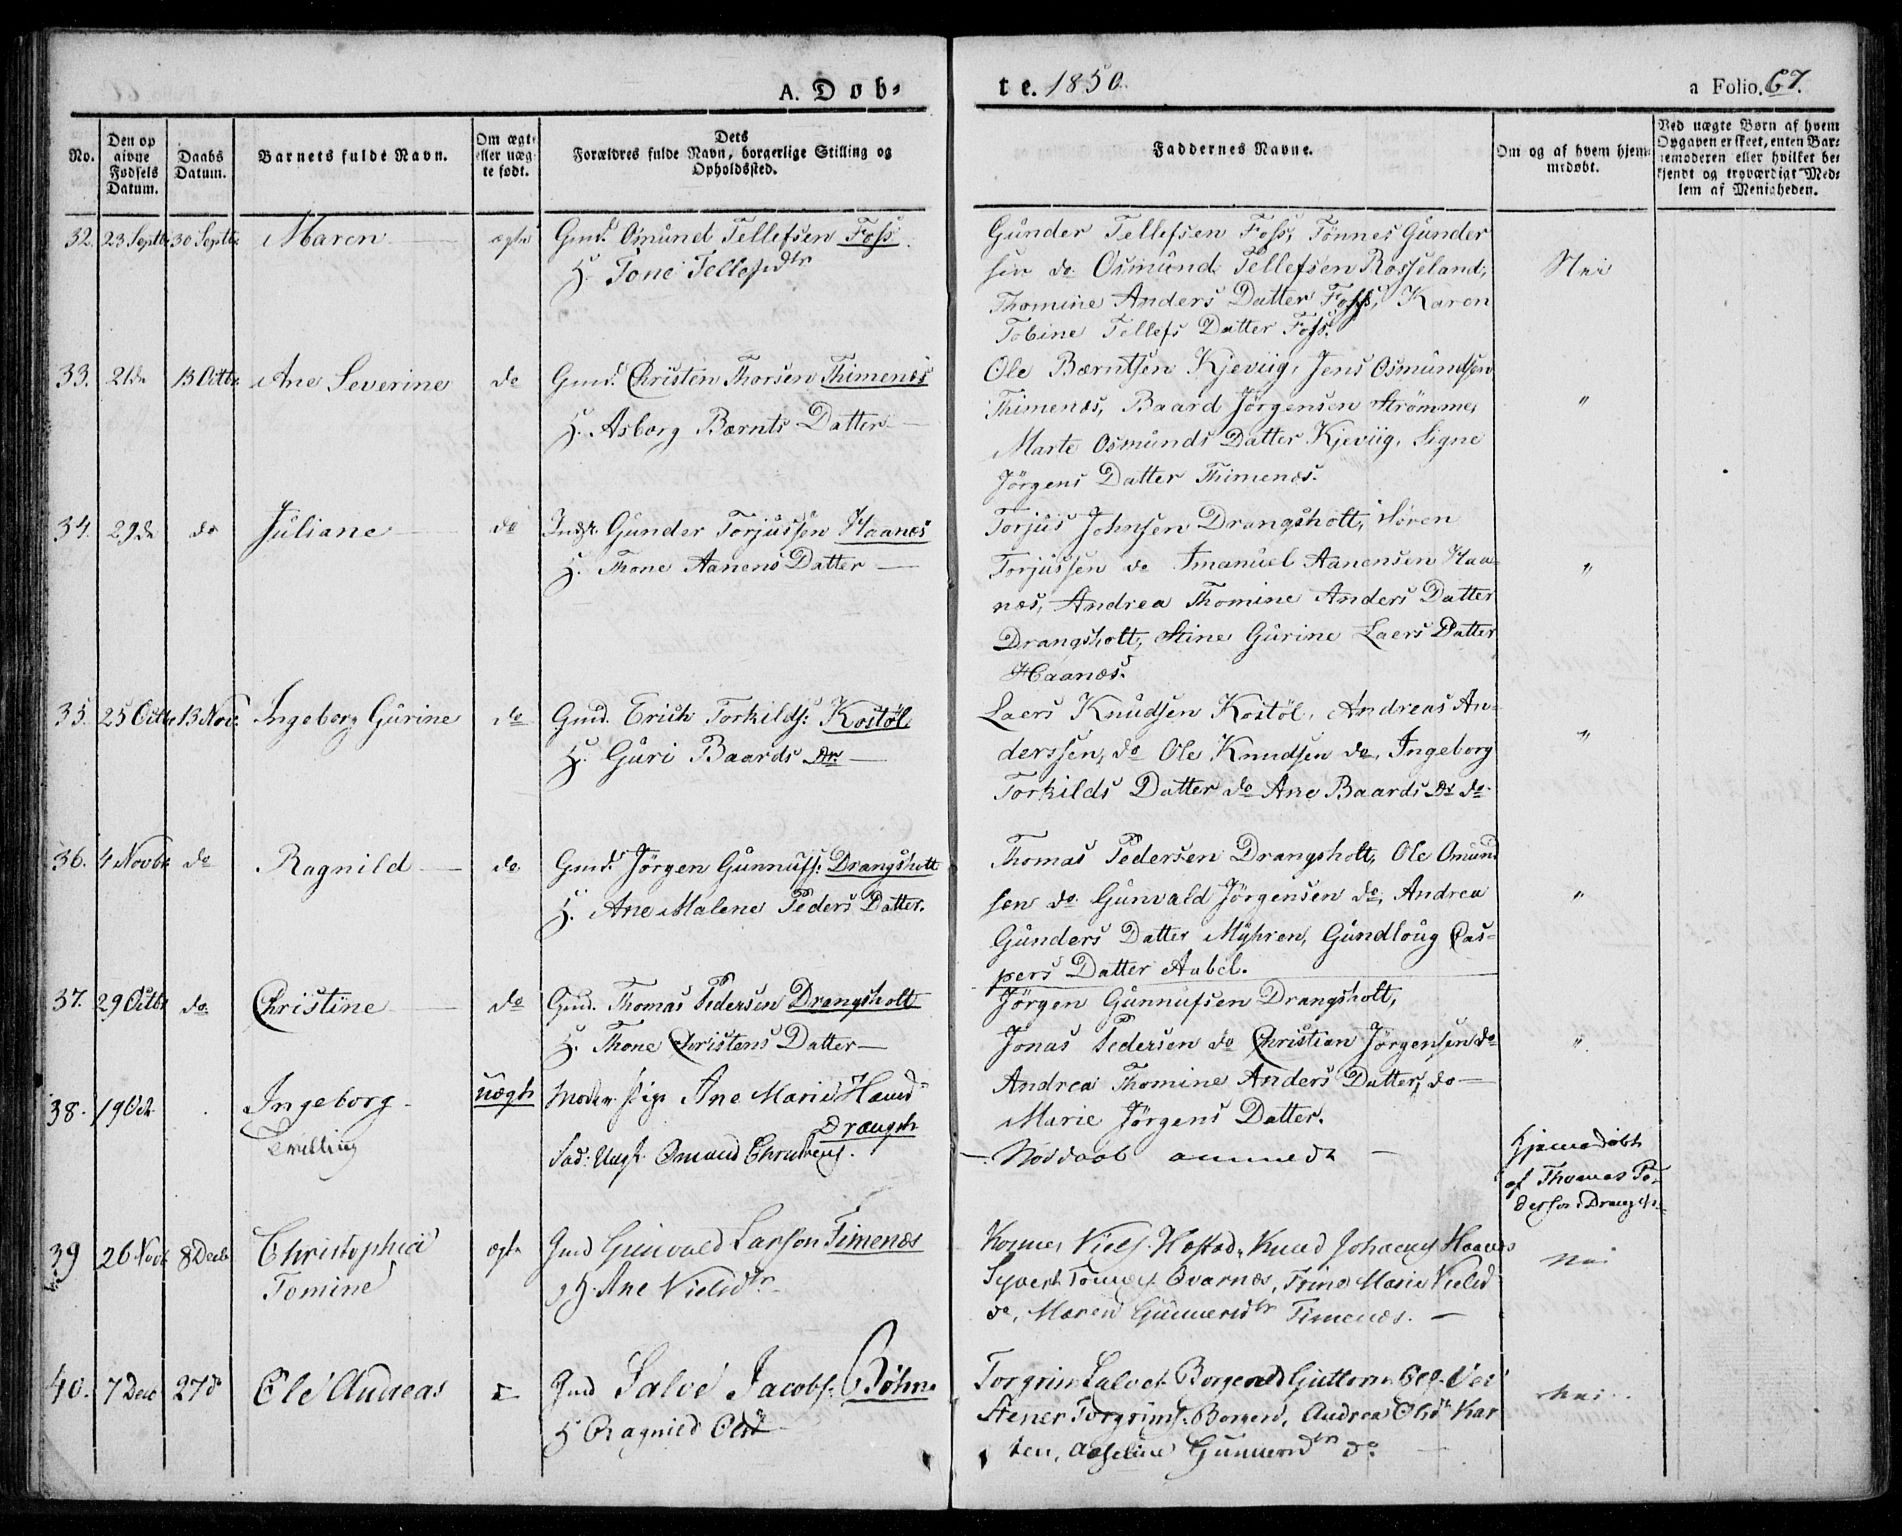 A. Döb-
te. 1850.
a Folio. 67.
No.
Den op givne Fødsels Datum.
Daabs Datum.
Barnets fulde Navn.
Om ægte eller uægte født.
Dets Forældres fulde Navn, borgerlige Stilling og Opholdssted.
Faddernes Navne.
Om og af hvem hjemmedøbt.
Ved uægte Børn af hvem Opgaven er skeet, enten Barnemoderen eller hvilket bekjendt og troværdigt Medlem af Menigheden.
32. 23 Septbr 30 Septbr Maren ægte Gmd. Omund Tellefsen Foss
H. Tone Tellefsdtr
Gunder Tellefsen Foss, Tönnes Gunder
sen do Osmund Tellefsen Rosseland,
Thomine Anders Datter Foss, Karen
Tobine Tellefs Datter Foss.
Nei
33. 21 do 13 Octbr Ane Severine do Gmd. Christen Thorsen Thimenæs
H. Asborg Bærnts Datter
Ole Bærntsen Kjeviig, Jens Osmundsen
Thimenæs, Baard Jörgensen Strömme,
Marte Osmunds Datter Kjeviig, Signe
Jörgens Datter Thimenæs.
"
34. 29 do do Juliane do Indst. Gunder Torjussen Haanes
H. Thone Aanens Datter
Torjus Johnsen Drangsholt, Sören
Torjussen do Imanuel Aanensen Haa-
næs, Andrea Thomine Anders Datter
Drangsholt, Stine Gurine Laers Datter
Haanæs.
"
35. 25 Octbr 13 Nov. Ingeborg Gurine do Gmd. Erich Torkilds: Kostöl
H. Guri Baards Dtr.
Laers Knudsen Kostöl, Andreas An-
derssen, do Ole Knudsen do, Ingeborg
Torkilds Datter do Ane Baards Dr do
"
36. 4 Novbr do Ragnild do Gmd. Jörgen Gunnufs: Drangsholt
H. Ane Malene Peders Datter.
Thomas Pedersen Drangsholt, Ole Omund
sen do Gunvald Jörgensen do, Andrea
Gunders Datter Myhren, Gundloug Cas-
pers Datter Aabel.
"
37. 29 Octbr do Christine do Gmd. Thomas Pedersen Drangsholt
H. Thone Christens Datter
Jörgen Gunnufsen Drangsholt,
Jonas Pedersen do Christian Jörgensen do
Andrea Thomine Anders Datter, do
Marie Jörgens Datter.
"
38. 19 Oct. Ingeborg uægte Moder Pige Ane Marie
Tvilling
Drangsh
Omund Christens.
Noddaab anmeldt
Hjemmedöbt
af Thomas Pe-
dersen Drangsh.
39 26 Novb 8 Decb Christophia ægte Gmd Gunvald Larson Timenæs
Tomine
H. Ane Nielsdtr
Niels: Hostad, Knud Johannes Haanæs
Syvert Qvarnæs, Trine Marie Nielsd
do, Maren Gunnersdtr Timenæs.
Nei
40. 7 Dec 27 do Ole Andreas Gmd Salve Jacobs: Böhne
H Ragnild Olsd
Torgrim Salves: Guttorm Ols.
Stener Torgrims: Andrea Olsdtr
Gunnersdtr do
Nei